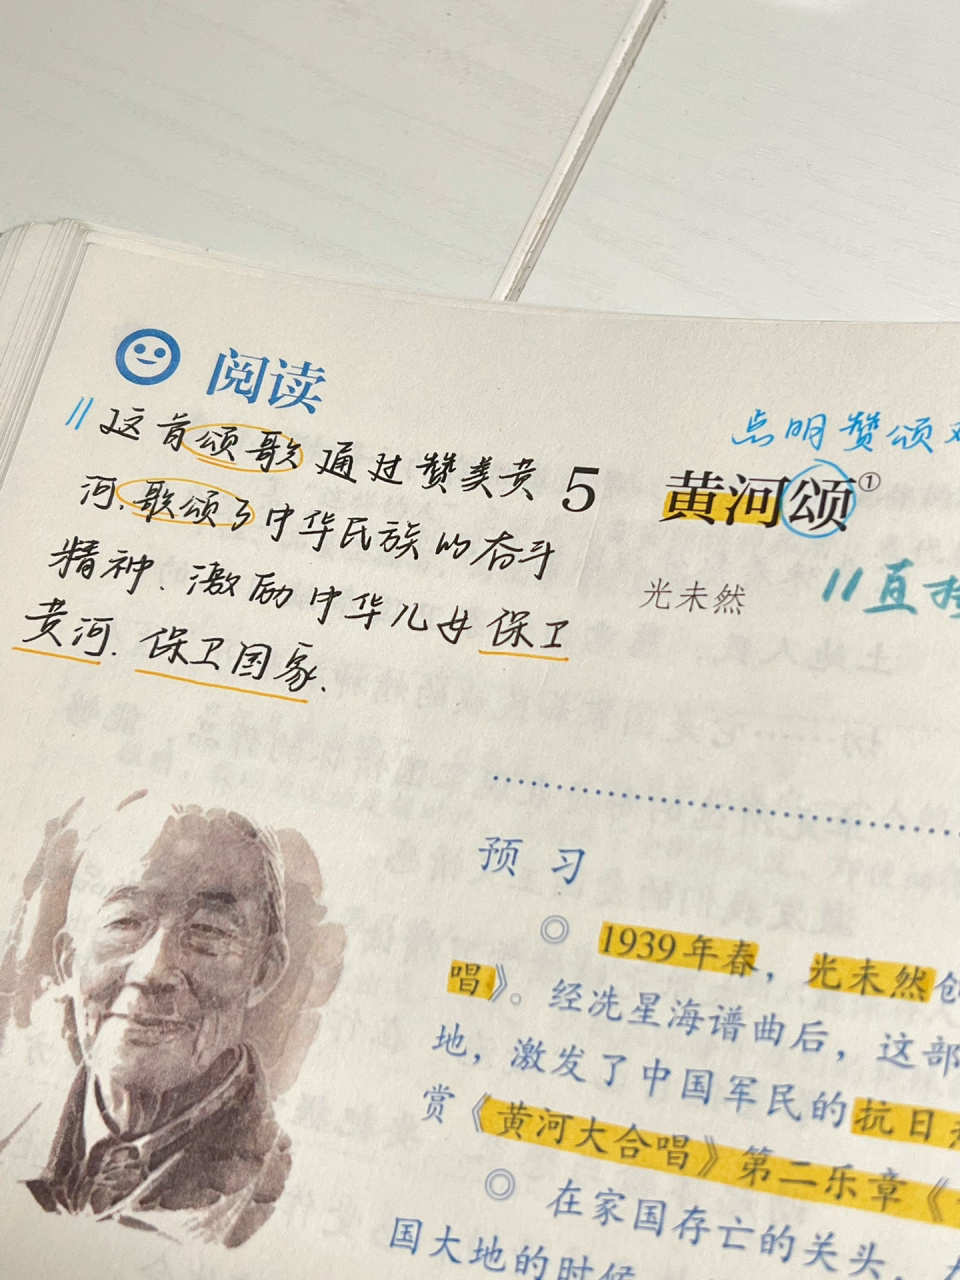 阅读
//这首颂歌通过赞美黄
河、歌颂了中华民族的奋斗
精神、激励中华儿女保卫
黄河、保卫国家.
点明赞颂
5 黄河颂①
光未然
//直
预习
◎ 1939年春，光未然创
唱》。经冼星海谱曲后，这部
地，激发了中国军民的抗日
赏《黄河大合唱》第二乐章《
◎ 在家国存亡的关头，
国大地的时候